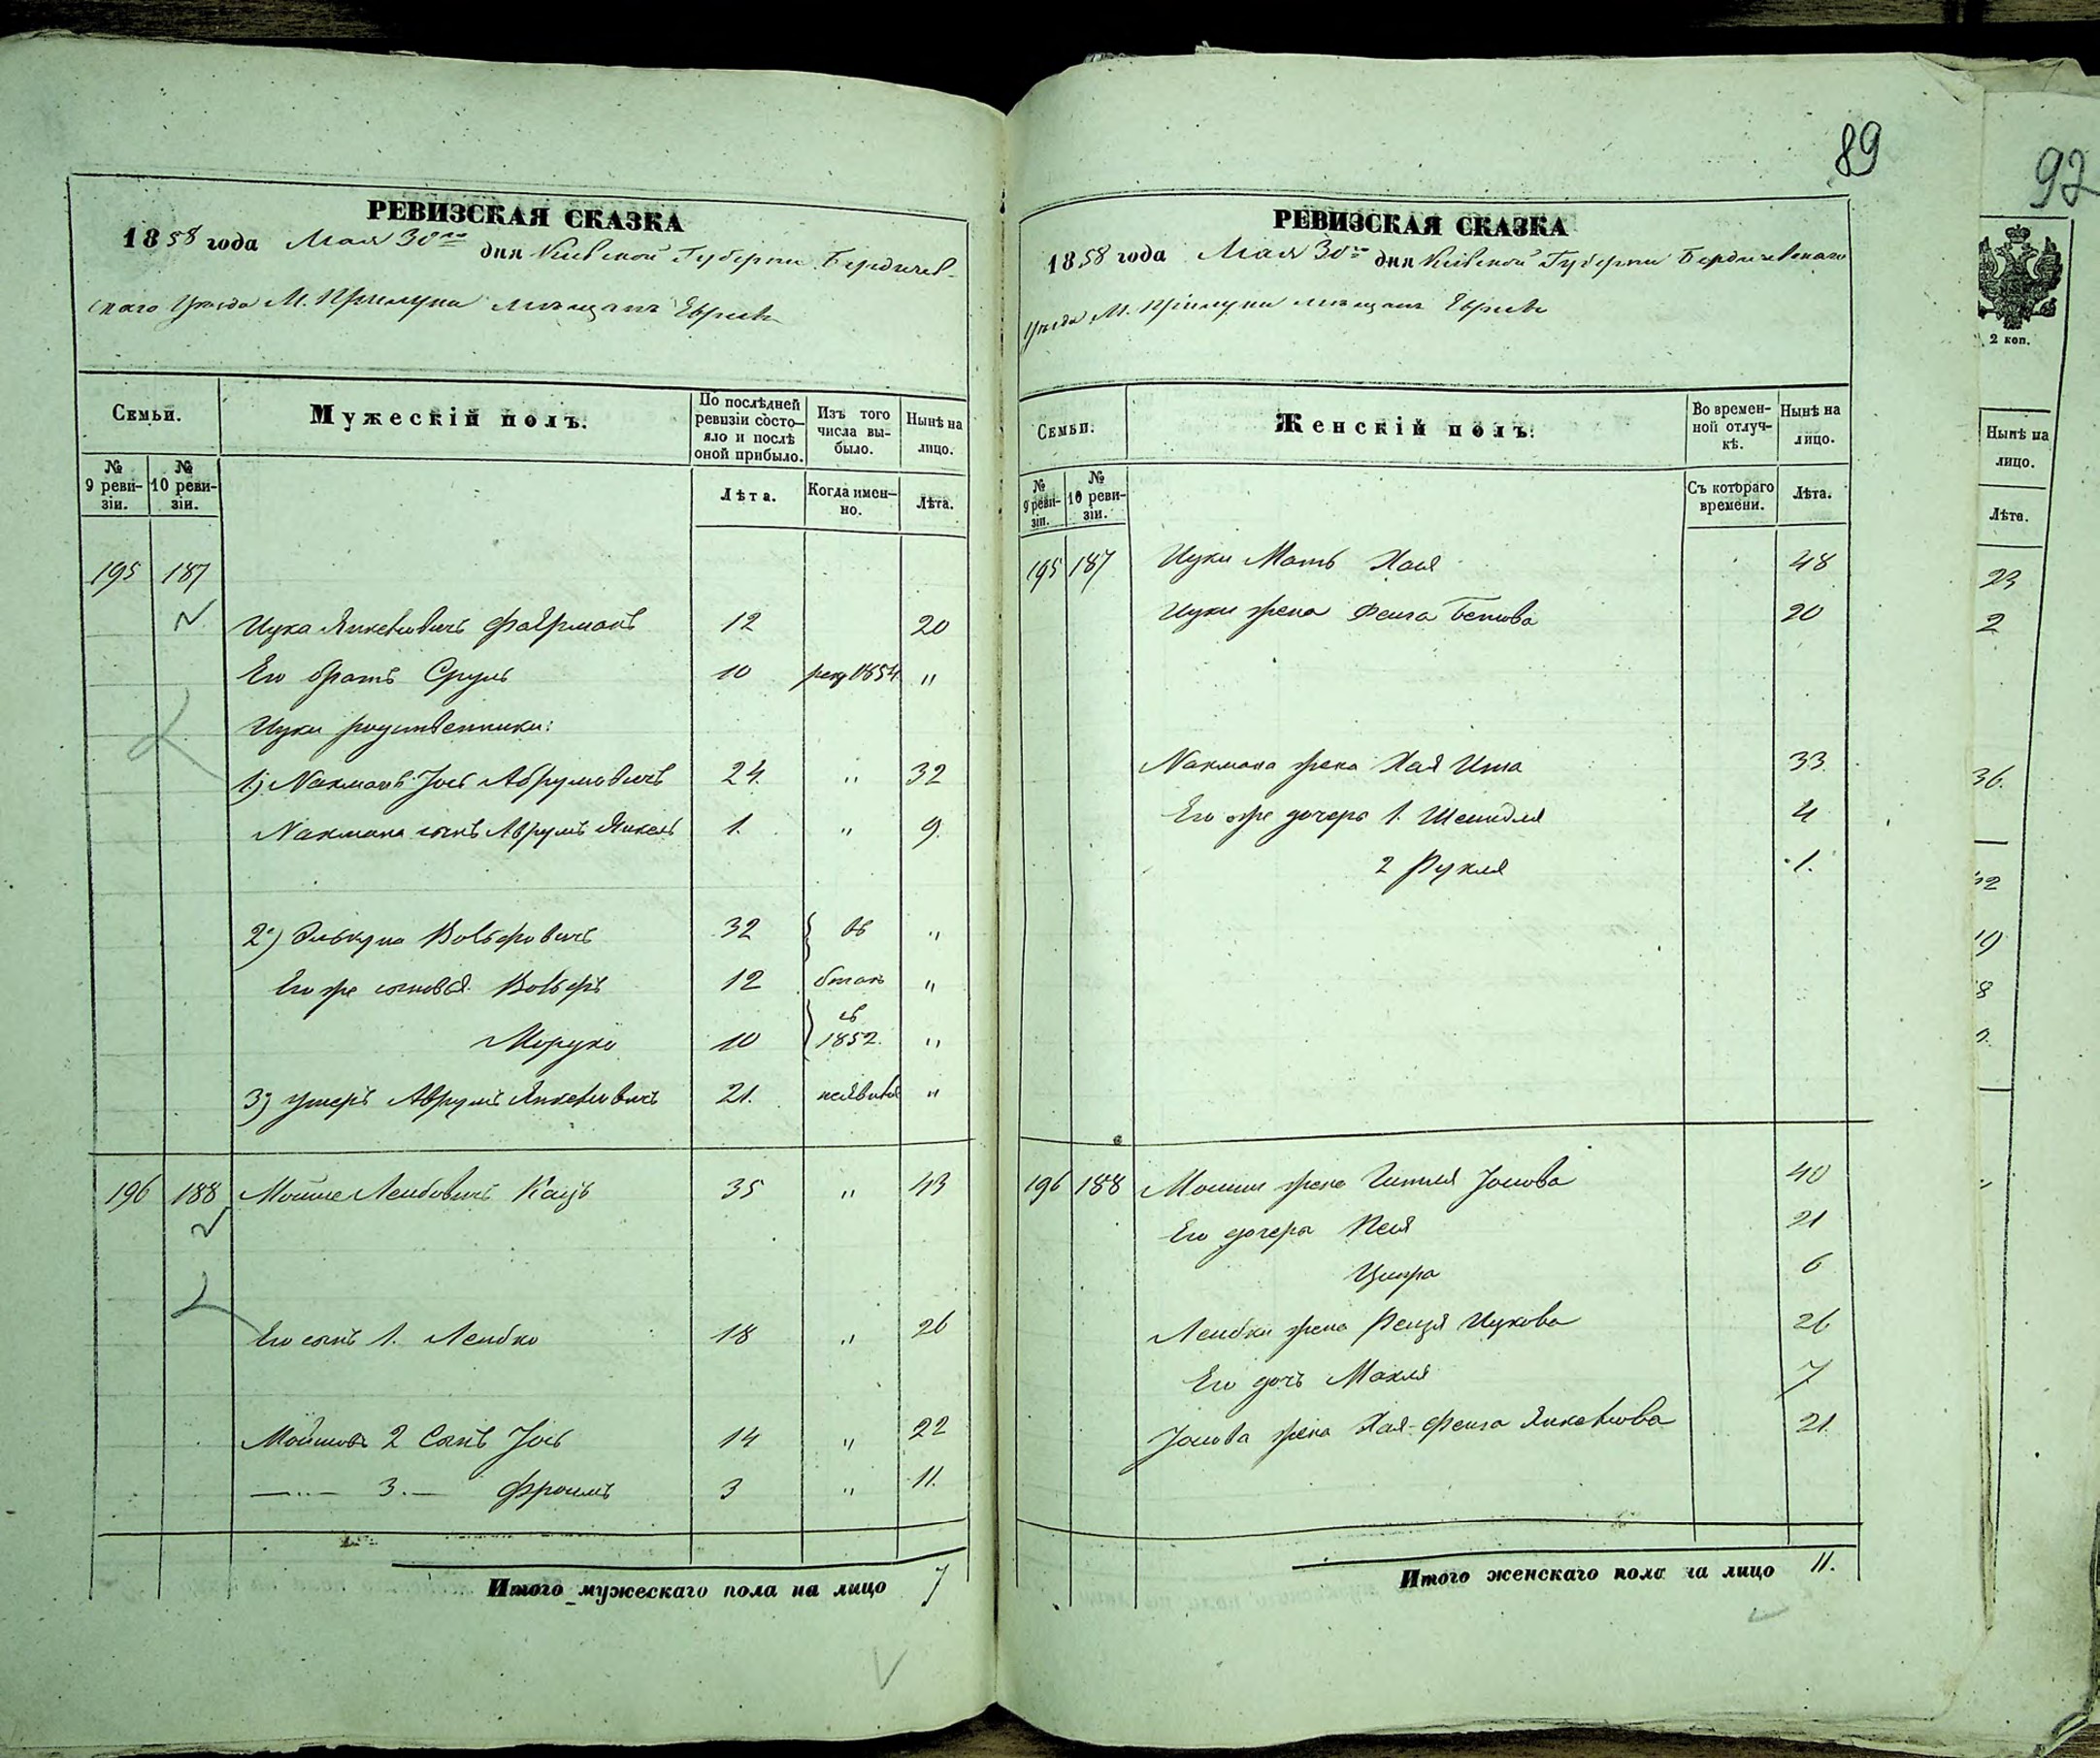 89
92
РЕВИЗСКАЯ СКАЗКА
1858 года Мая 30го дня Киевской Губерніи Бердичев-
скаго Уезда М. Прилуки мещанъ Евреевъ
Семьи.
Мужескій полъ.
По послѣдней ревизіи состо-яло и послѣ оной прибыло.
Изъ того числа вы-было.
Нынѣ на лицо.
№ 9 реви-зіи.
№ 10 реви-зіи.
Лѣта.
Когда имен-но.
Лѣта.
195 187
Ицка Янкелевичъ Фаерманъ 12 20
Его братъ Сруль 10 рек 1854 "
Ицки родственники:
1.) Нахманъ Іось Абрумовичъ 24. " 32
Нахмана сынъ Аврумъ Янкель 1. " 9.
2.) Элькуна Вольфовичъ 32 въ "
Его же сыновья Вольфъ 12 "
Мордко 10 съ 1852. "
3) Ушеръ Аврумъ Янкелевичъ 21. "
196 188 Мойше Лейбовичъ Кацъ 35 " 43
Его сынъ 1. Лейбко 18 " 26
Мошковъ 2 Сынъ Іось 14 " 22
—"— 3.— Фроимъ 3 " 11.
Итого мужескаго пола на лицо 7
РЕВИЗСКАЯ СКАЗКА
1858 года Мая 30го дня Киевской Губерніи Бердичевскаго
Уезда М. Прилуки мещанъ Евреевъ
Семьи.
Женскій полъ.
Во времен-ной отлуч-кѣ.
Нынѣ на лицо.
№ 9 реви-зіи.
№ 10 реви-зіи.
Съ котораго времени.
Лѣта.
195 187 Ицки Мать Хая 48
Ицки жена Фейга Беркова 20
Нахмана жена Хая Ита 33
Его же дочери 1. Шейндля 4
2 Рухля 1.
196 188 Мошки жена Гитля Іосова 40
Его дочери Песя 21
Ципра 6
Лейбки жена Рейзя Ицкова 26
Его дочь Махля 7
Іосова жена Хая-Фейга Янкелева 21.
Итого женскаго пола на лицо 11.
2 коп.
Нынѣ на лицо.
Лѣта.
23
2
36.
19
8